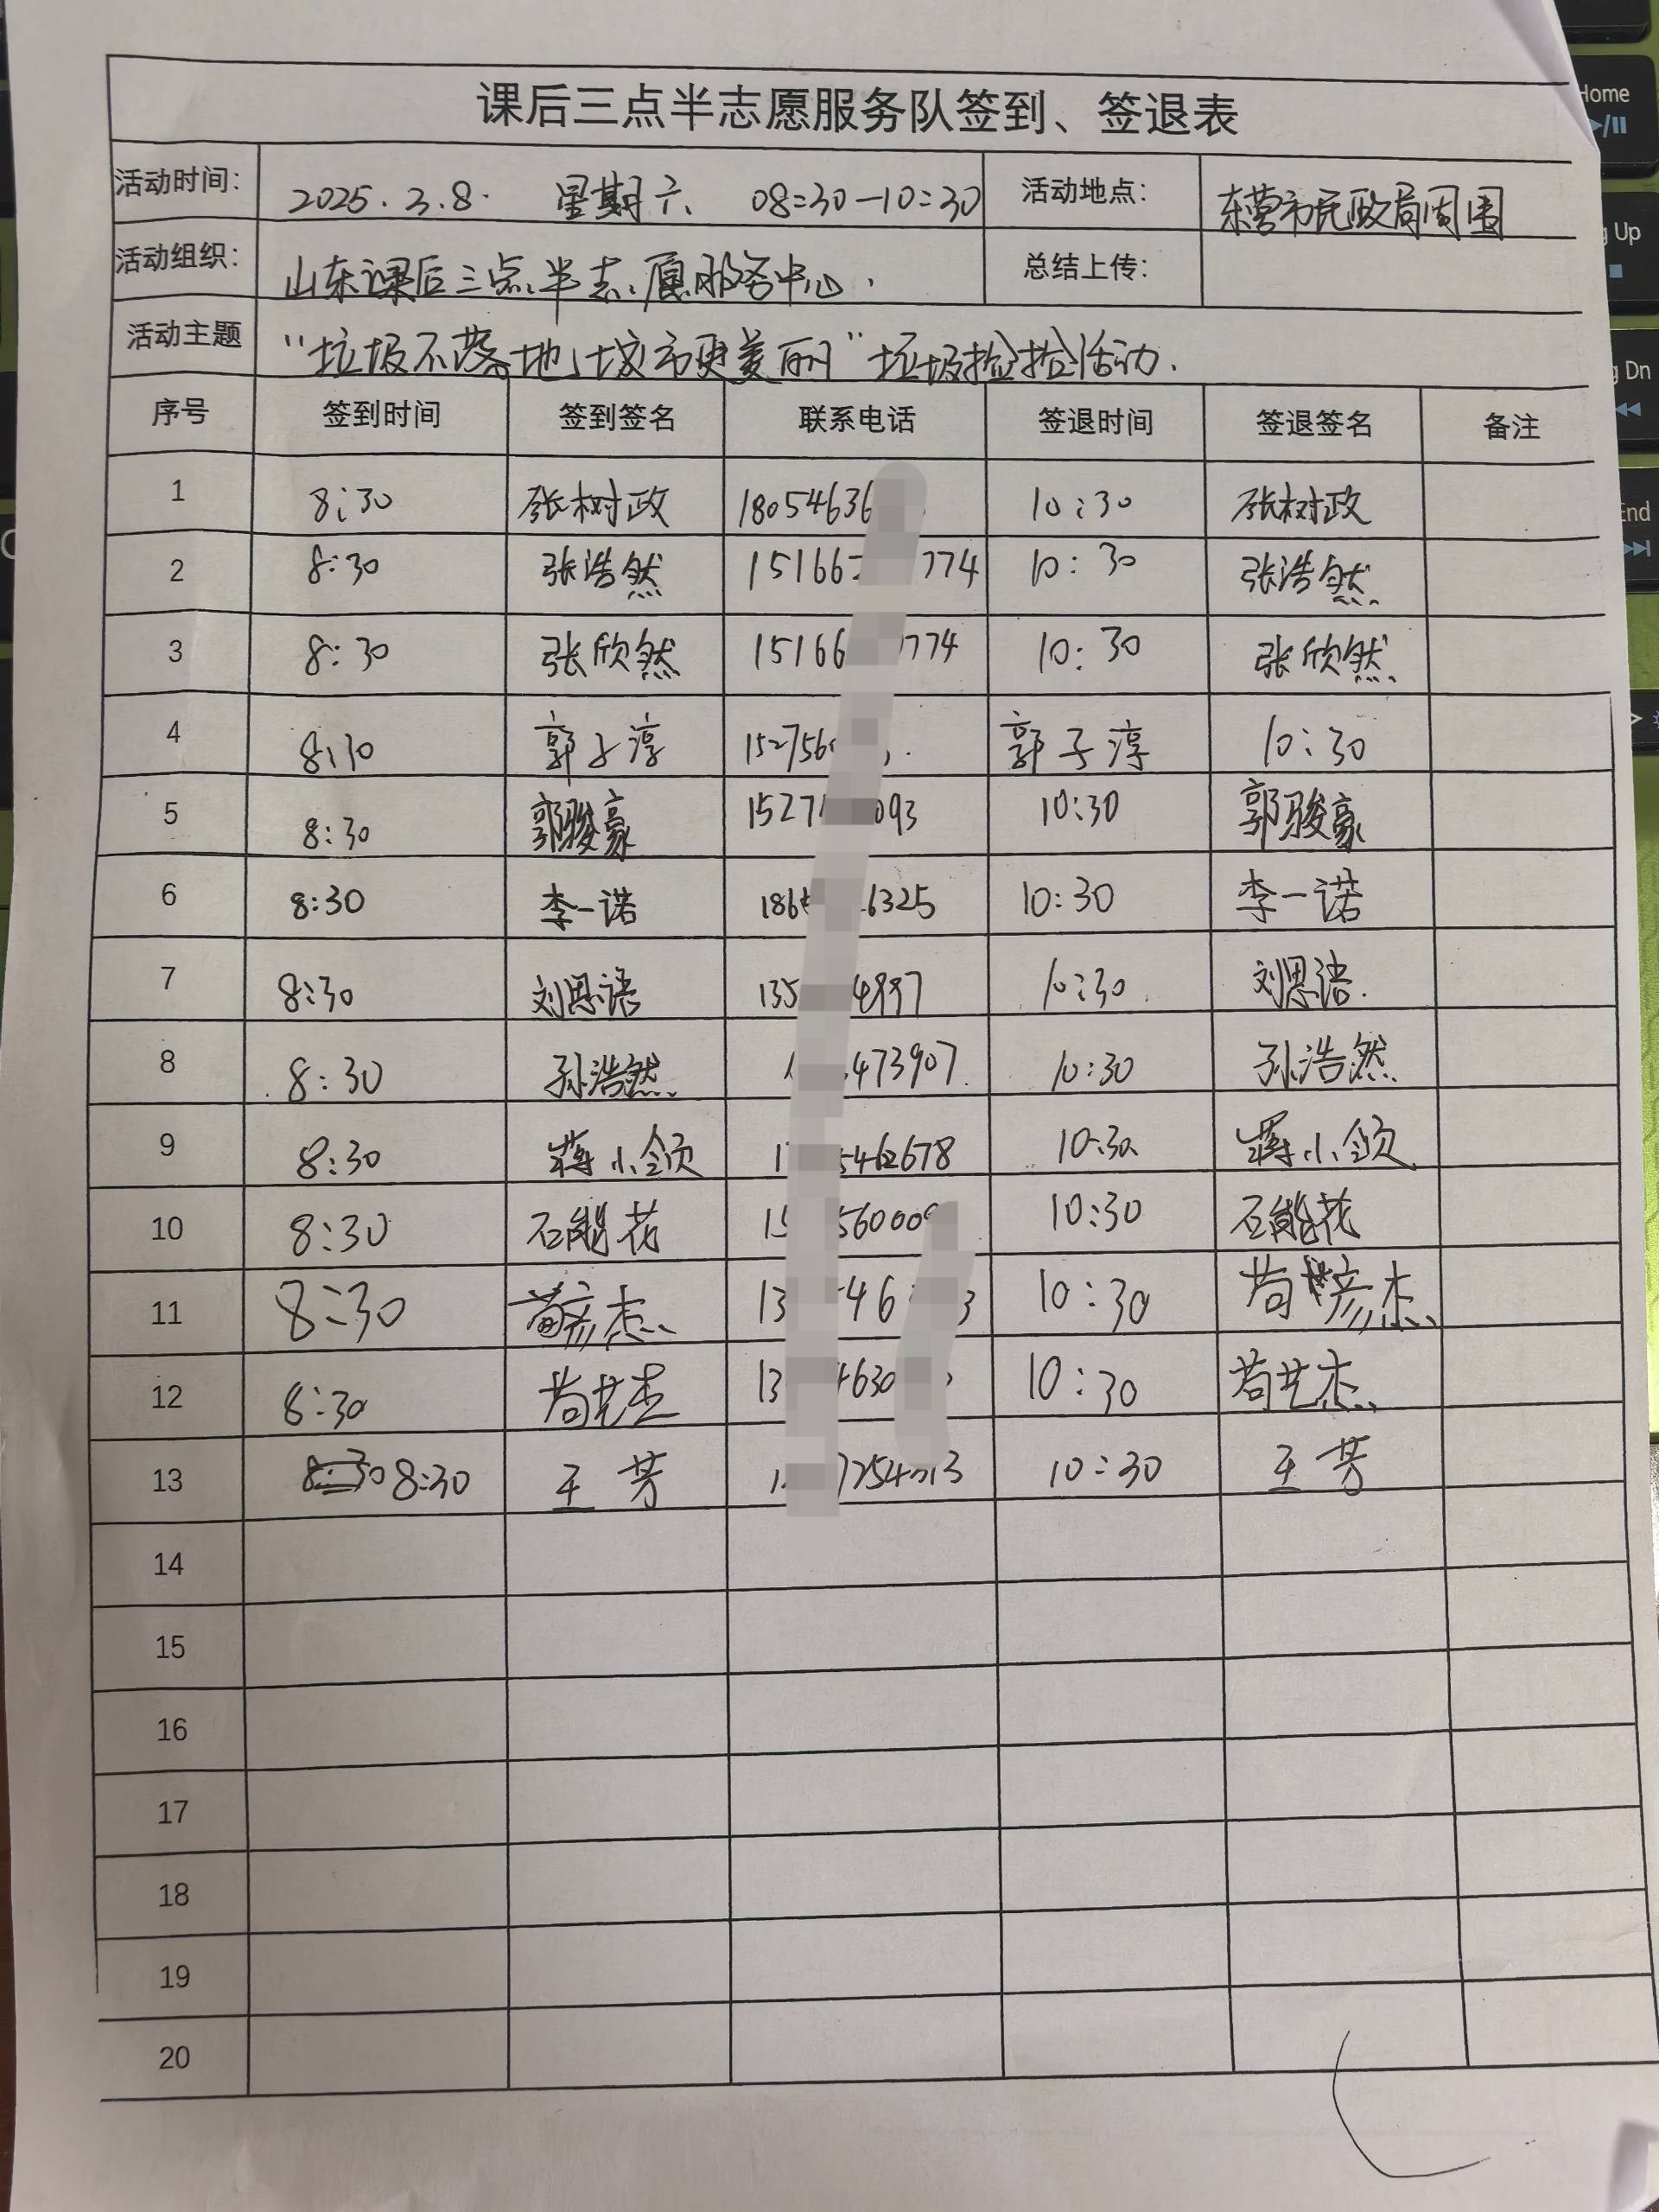 课后三点半志愿服务队签到、签退表
活动时间： 2025.3.8. 星期六 08:30—10:30 活动地点： 东营市民政局周围
活动组织： 山东课后三点半志愿服务中心. 总结上传：
活动主题 “垃圾不落地,城市更美丽”垃圾捡捡活动.
序号 签到时间 签到签名 联系电话 签退时间 签退签名 备注
1 8:30 张树政 18054636 10:30 张树政
2 8:30 张浩然 15166 774 10:30 张浩然
3 8:30 张欣然 15166 774 10:30 张欣然
4 8:30 郭子淳 152756 郭子淳 10:30
5 8:30 郭骏豪 1527 093 10:30 郭骏豪
6 8:30 李一诺 186 6325 10:30 李一诺
7 8:30 刘思语 135 4997 10:30 刘思语.
8 8:30 孙浩然 473907 10:30 孙浩然
9 8:30 蒋小颂 1 5462678 10:30 蒋小颂
10 8:30 石能花 15 56000 10:30 石能花
11 8:30 苟彦杰 13 46 3 10:30 苟彦杰
12 8:30 苟艺杰 13 4630 10:30 苟艺杰
13 8:30 王芳 1 7254 13 10:30 王芳
14
15
16
17
18
19
20
Home
Up
Dn
End